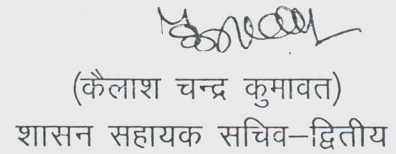 (कैलाश चन्द्र कुमावत)
शासन सहायक सचिव–द्वितीय